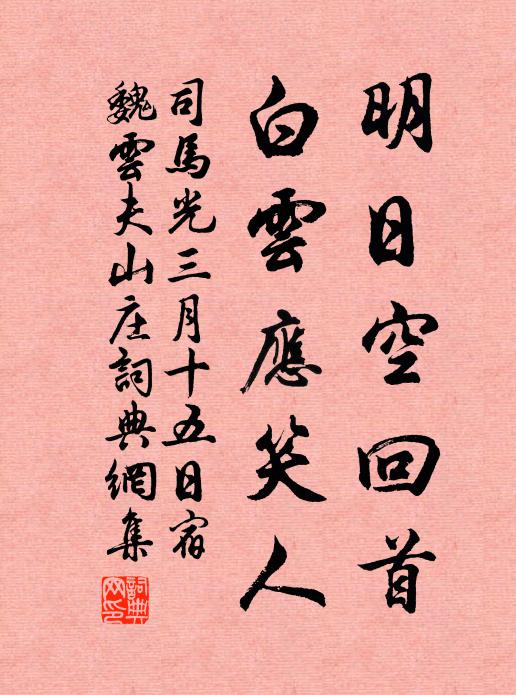 明日空回首
白雲應笑人
司馬光三月十五日宿
魏雲夫山庄詞典網集
詞典網印